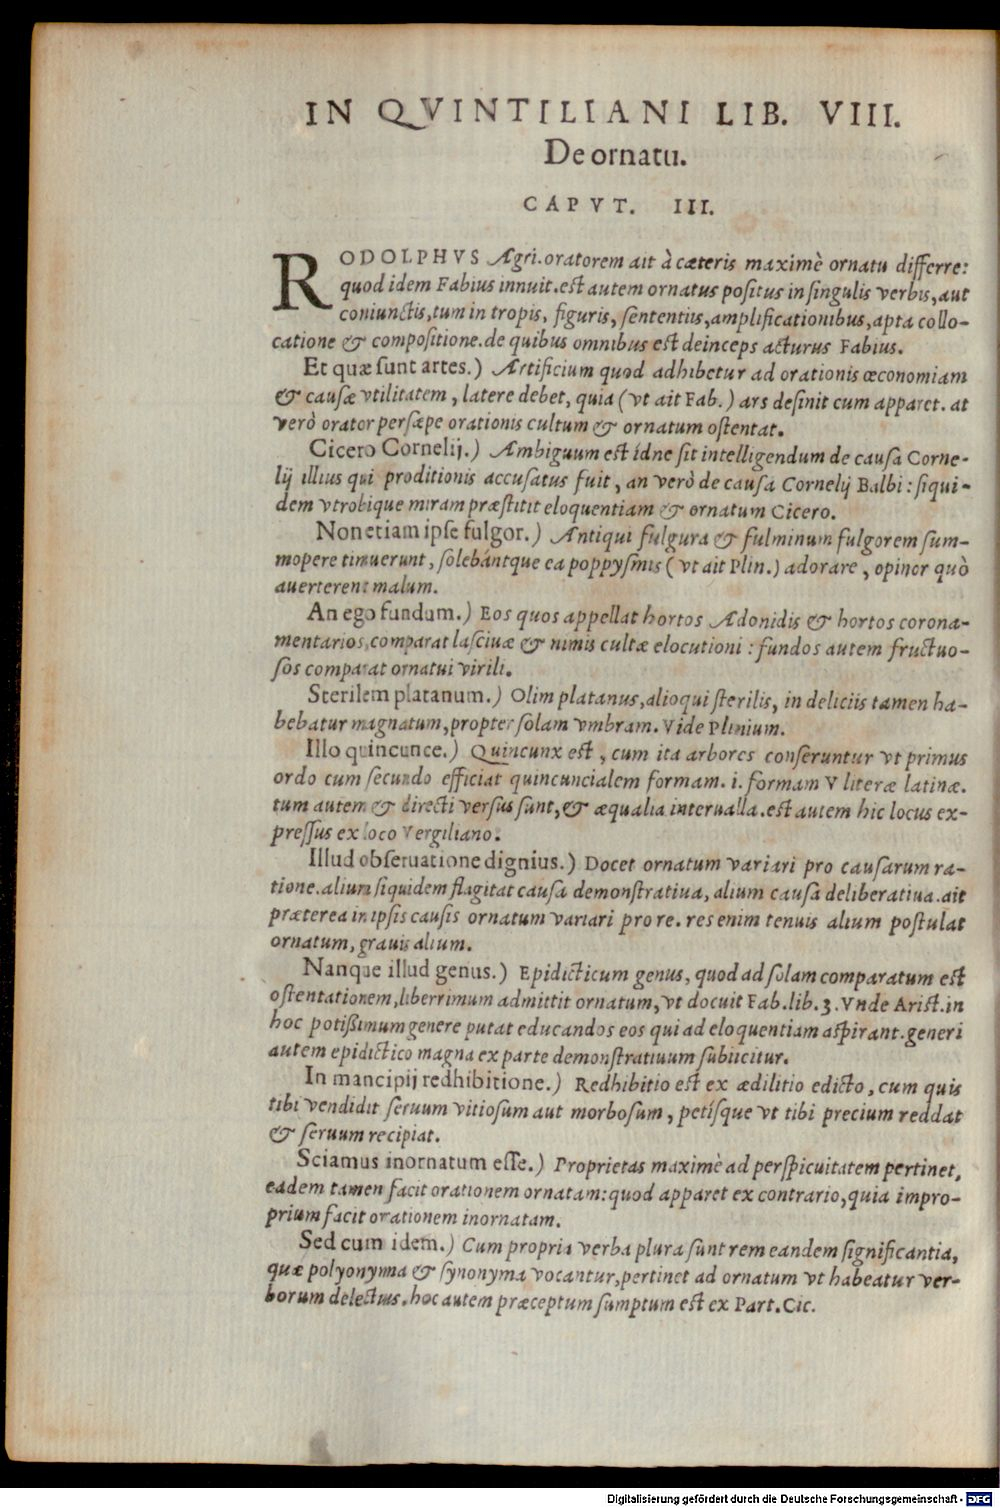 IN QVINTILIANI LIB. VIII.
De ornatu.
CAPVT. III.
RODOLPHVS Agri. oratorem ait à cæteris maximè ornatu differre:
quod idem Fabius innuit. est autem ornatus positus in singulis verbis, aut
coniunctis, tum in tropis, figuris, sententiis, amplificationibus, apta collo-
catione & compositione. de quibus omnibus est deinceps acturus Fabius.
Et quæ sunt artes.) Artificium quod adhibetur ad orationis œconomiam
& causæ vtilitatem, latere debet, quia (vt ait Fab.) ars desinit cum apparet. at
verò orator persæpe orationis cultum & ornatum ostentat.
Cicero Cornelij.) Ambiguum est ídne sit intelligendum de causa Corne-
lij illius qui proditionis accusatus fuit, an verò de causa Cornelij Balbi: siqui-
dem vtrobique miram præstitit eloquentiam & ornatum Cicero.
Non etiam ipse fulgor.) Antiqui fulgura & fulminum fulgorem sum-
mopere timuerunt, solebántque ea poppysmis (vt ait Plin.) adorare, opinor quò
auerterent malum.
An ego fundum.) Eos quos appellat hortos Adonidis & hortos corona-
mentarios, comparat lasciuæ & nimis cultæ elocutioni: fundos autem fructuo-
sos comparat ornatui virili.
Sterilem platanum.) Olim platanus, alioqui sterilis, in deliciis tamen ha-
bebatur magnatum, propter solam vmbram. Vide Plinium.
Illo quincunce.) Quincunx est, cum ita arbores conseruntur vt primus
ordo cum secundo efficiat quincuncialem formam. i. formam V literæ latinæ.
tum autem & directi versus sunt, & æqualia interualla. est autem hic locus ex-
pressus ex loco Vergiliano.
Illud obseruatione dignius.) Docet ornatum variari pro causarum ra-
tione. alium siquidem flagitat causa demonstratiua, alium causa deliberatiua. ait
præterea in ipsis causis ornatum variari pro re. res enim tenuis alium postulat
ornatum, grauis alium.
Nanque illud genus.) Epidicticum genus, quod ad solam comparatum est
ostentationem, liberrimum admittit ornatum, vt docuit Fab. lib. 3. Vnde Arist. in
hoc potißimum genere putat educandos eos qui ad eloquentiam aspirant. generi
autem epidictico magna ex parte demonstratiuum subiicitur.
In mancipij redhibitione.) Redhibitio est ex ædilitio edicto, cum quis
tibi vendidit seruum vitiosum aut morbosum, petísque vt tibi precium reddat
& seruum recipiat.
Sciamus inornatum esse.) Proprietas maximè ad perspicuitatem pertinet,
eadem tamen facit orationem ornatam: quod apparet ex contrario, quia impro-
prium facit orationem inornatam.
Sed cum idem.) Cum propria verba plura sunt rem eandem significantia,
quæ polyonyma & synonyma vocantur, pertinet ad ornatum vt habeatur ver-
borum delectus. hoc autem præceptum sumptum est ex Part. Cic.
Digitalisierung gefördert durch die Deutsche Forschungsgemeinschaft - DFG